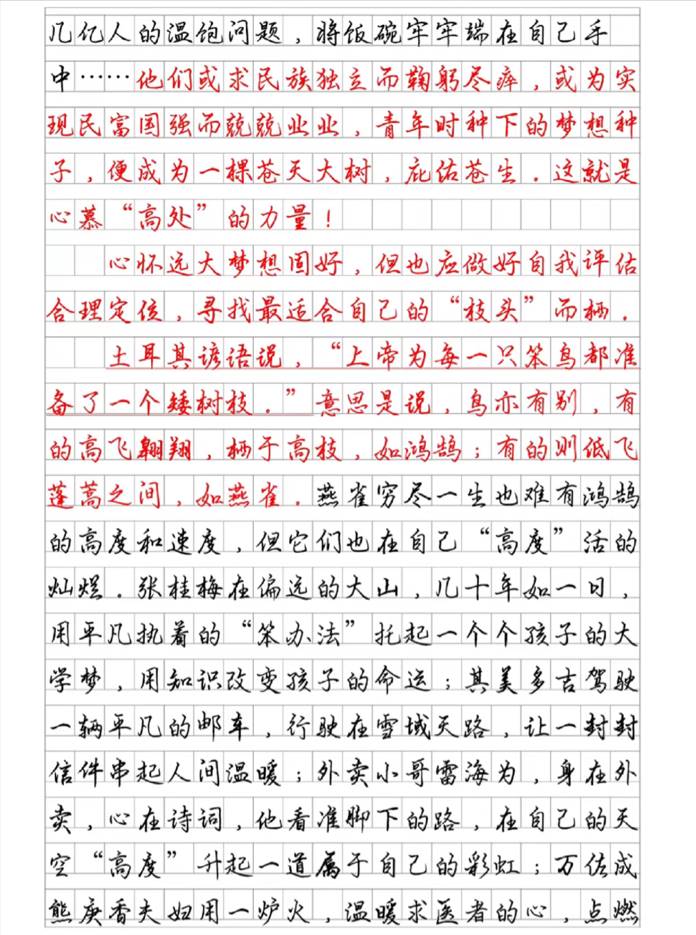 几亿人的温饱问题，将饭碗牢牢端在自己手
中……他们或求民族独立而鞠躬尽瘁，或为实
现民富国强而兢兢业业，青年时种下的梦想种
子，便成为一棵苍天大树，庇佑苍生。这就是
心慕“高处”的力量！
心怀远大梦想固好，但也应做好自我评估
合理定位，寻找最适合自己的“枝头”而栖。
土耳其谚语说，“上帝为每一只笨鸟都准
备了一个矮树枝。”意思是说，鸟亦有别，有
的高飞翱翔，栖于高枝，如鸿鹄；有的则低飞
蓬蒿之间，如燕雀。燕雀穷尽一生也难有鸿鹄
的高度和速度，但它们也在自己“高度”活的
灿烂。张桂梅在偏远的大山，几十年如一日，
用平凡执着的“笨办法”托起一个个孩子的大
学梦，用知识改变孩子的命运；其美多吉驾驶
一辆平凡的邮车，行驶在雪域天路，让一封封
信件串起人间温暖；外卖小哥雷海为，身在外
卖，心在诗词，他看准脚下的路，在自己的天
空“高度”升起一道属于自己的彩虹；万佐成
熊庚香夫妇用一炉火，温暖求医者的心，点燃